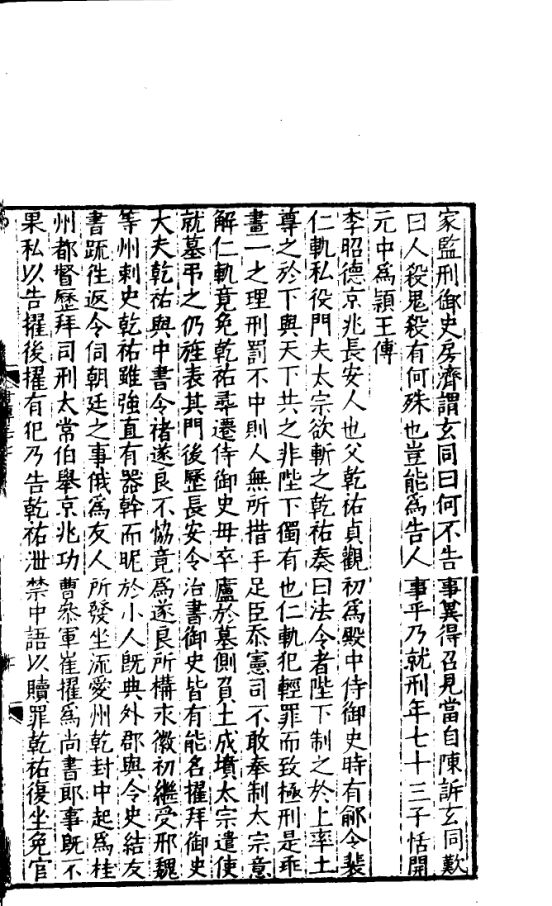 家監刑御史房濟謂玄同曰何不告事冀得召見當自陳訴玄同歎
曰人殺鬼殺有何殊也豈能為告人事乎乃就刑年七十三子恬開
元中為潁王傅
李昭德京兆長安人也父乾祐貞觀初為殿中侍御史時有鄃令裴
仁軌私役門夫太宗欲斬之乾祐奏曰法令者陛下制之於上率土
尊之於下與天下共之非陛下獨有也仁軌犯輕罪而致極刑是乖
畫一之理刑罰不中則人無所措手足臣忝憲司不敢奉制太宗意
解仁軌竟免乾祐尋遷侍御史母卒廬於墓側負土成墳太宗遣使
就墓弔之仍旌表其門後歷長安令治書御史皆有能名擢拜御史
大夫乾祐與中書令褚遂良不恊竟為遂良所構永徽初繼受邢魏
等州刺史乾祐雖強直有器幹而昵於小人旣典外郡與令史結友
書䟽徃返令伺朝廷之事俄為友人所發坐流愛州乾封中起為桂
州都督歷拜司刑太常伯舉京兆功曹叅軍崔擢為尚書郎事旣不
果私以告擢後擢有犯乃告乾祐泄禁中語以贖罪乾祐復坐免官